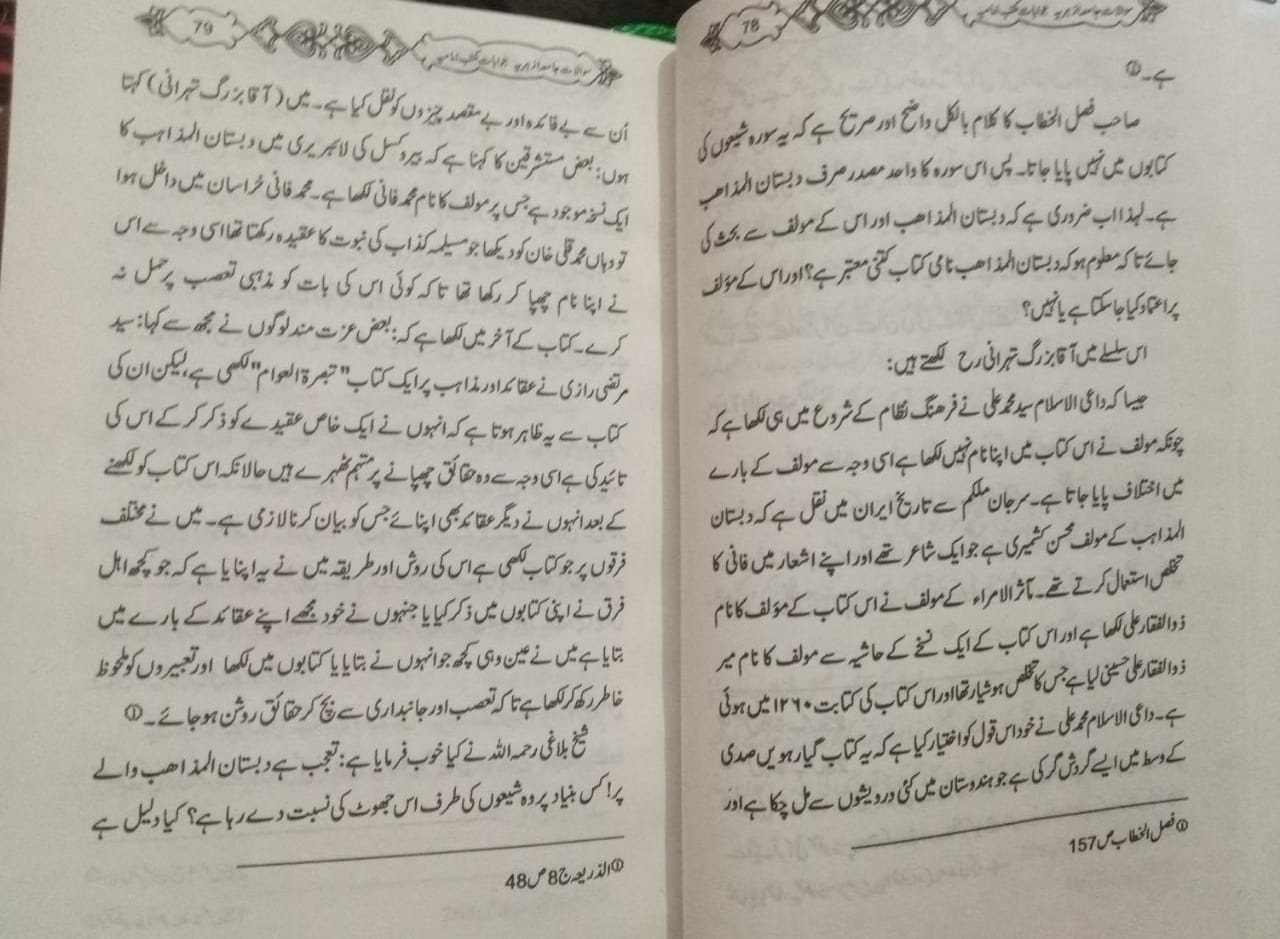 78
سوالات جامعہ ازہریہ جوابات مکتب امامیہ
ہے۔①
صاحب فصل الخطاب کا کلام بالکل واضح اور صریح ہے کہ یہ سورہ شیعوں کی
کتابوں میں نہیں پایا جاتا۔ پس اس سورہ کا واحد مصدر صرف دبستان المذاھب
ہے۔ لہذا اب ضروری ہے کہ دبستان المذاھب اور اس کے مولف سے بحث کی
جائے تاکہ معلوم ہو کہ دبستان المذاھب نامی کتاب کتنی معتبر ہے؟ اور اس کے مؤلف
پر اعتماد کیا جا سکتا ہے یا نہیں؟
اس سلسلے میں آقا بزرگ تہرانی رح لکھتے ہیں:
جیسا کہ داعی الاسلام سید محمد علی نے فرھنگ نظام کے شروع میں ہی لکھا ہے کہ
چونکہ مولف نے اس کتاب میں اپنا نام نہیں لکھا ہے اسی وجہ سے مولف کے بارے
میں اختلاف پایا جاتا ہے۔ سرجان ملکم سے تاریخ ایران میں نقل ہے کہ دبستان
المذاہب کے مولف محسن کشمیری ہے جو ایک شاعر تھے اور اپنے اشعار میں فانی کا
تخلص استعمال کرتے تھے۔ مآثر الامراء کے مولف نے اس کتاب کے مؤلف کا نام
ذوالفقار علی لکھا ہے اور اس کتاب کے ایک نسخے کے حاشیہ سے مولف کا نام میر
ذوالفقار علی حسینی لیا ہے جس کا تخلص ہوشیار تھا اور اس کتاب کی کتابت ۱۲۶۰ میں ہوئی
ہے۔ داعی الاسلام محمد علی نے خود اس قول کو اختیار کیا ہے کہ یہ کتاب گیارہویں صدی
کے وسط میں ایسے گردش گر کی ہے جو ہندوستان میں کئی درویشوں سے مل چکا ہے اور
① فصل الخطاب ص 157
79
سوالات جامعہ ازہریہ جوابات مکتب امامیہ
اُن سے بے فائدہ اور بے مقصد چیزوں کو نقل کیا ہے۔ میں (آقا بزرگ تہرانی) کہتا
ہوں: بعض مستشرقین کا کہنا ہے کہ بیروکسل کی لائبریری میں دبستان المذاہب کا
ایک نسخہ موجود ہے جس پر مولف کا نام محمد فانی لکھا ہے۔ محمد فانی خراسان میں داخل ہوا
تو وہاں محمد قلی خان کو دیکھا جو مسیلمہ کذاب کی نبوت کا عقیدہ رکھتا تھا اسی وجہ سے اس
نے اپنا نام چھپا کر رکھا تھا تاکہ کوئی اس کی بات کو مذہبی تعصب پر حمل نہ
کرے۔ کتاب کے آخر میں لکھا ہے کہ: بعض عزت مند لوگوں نے مجھ سے کہا: سید
مرتضی رازی نے عقائد اور مذاہب پر ایک کتاب "تبصرۃ العوام" لکھی ہے، لیکن ان کی
کتاب سے یہ ظاہر ہوتا ہے کہ انہوں نے ایک خاص عقیدے کو ذکر کر کے اس کی
تائید کی ہے اسی وجہ سے وہ حقائق چھپانے پر متہم ٹھہرے ہیں حالانکہ اس کتاب کو لکھنے
کے بعد انہوں نے دیگر عقائد بھی اپنائے جس کو بیان کرنا لازمی ہے۔ میں نے مختلف
فرقوں پر جو کتاب لکھی ہے اس کی روش اور طریقہ میں نے یہ اپنایا ہے کہ جو کچھ اہل
فرق نے اپنی کتابوں میں ذکر کیا یا جنہوں نے خود مجھے اپنے عقائد کے بارے میں
بتایا ہے میں نے عین وہی کچھ جو انہوں نے بتایا یا کتابوں میں لکھا اور تعبیروں کو ملحوظ
خاطر رکھ کر لکھا ہے تاکہ تعصب اور جانبداری سے بچ کر حقائق روشن ہو جائے۔①
شیخ بلاغی رحمہ اللہ نے کیا خوب فرمایا ہے: تعجب ہے دبستان المذاھب والے
پر! کس بنیاد پر وہ شیعوں کی طرف اس جھوٹ کی نسبت دے رہا ہے؟ کیا دلیل ہے
① الذریعہ ج 8 ص 48